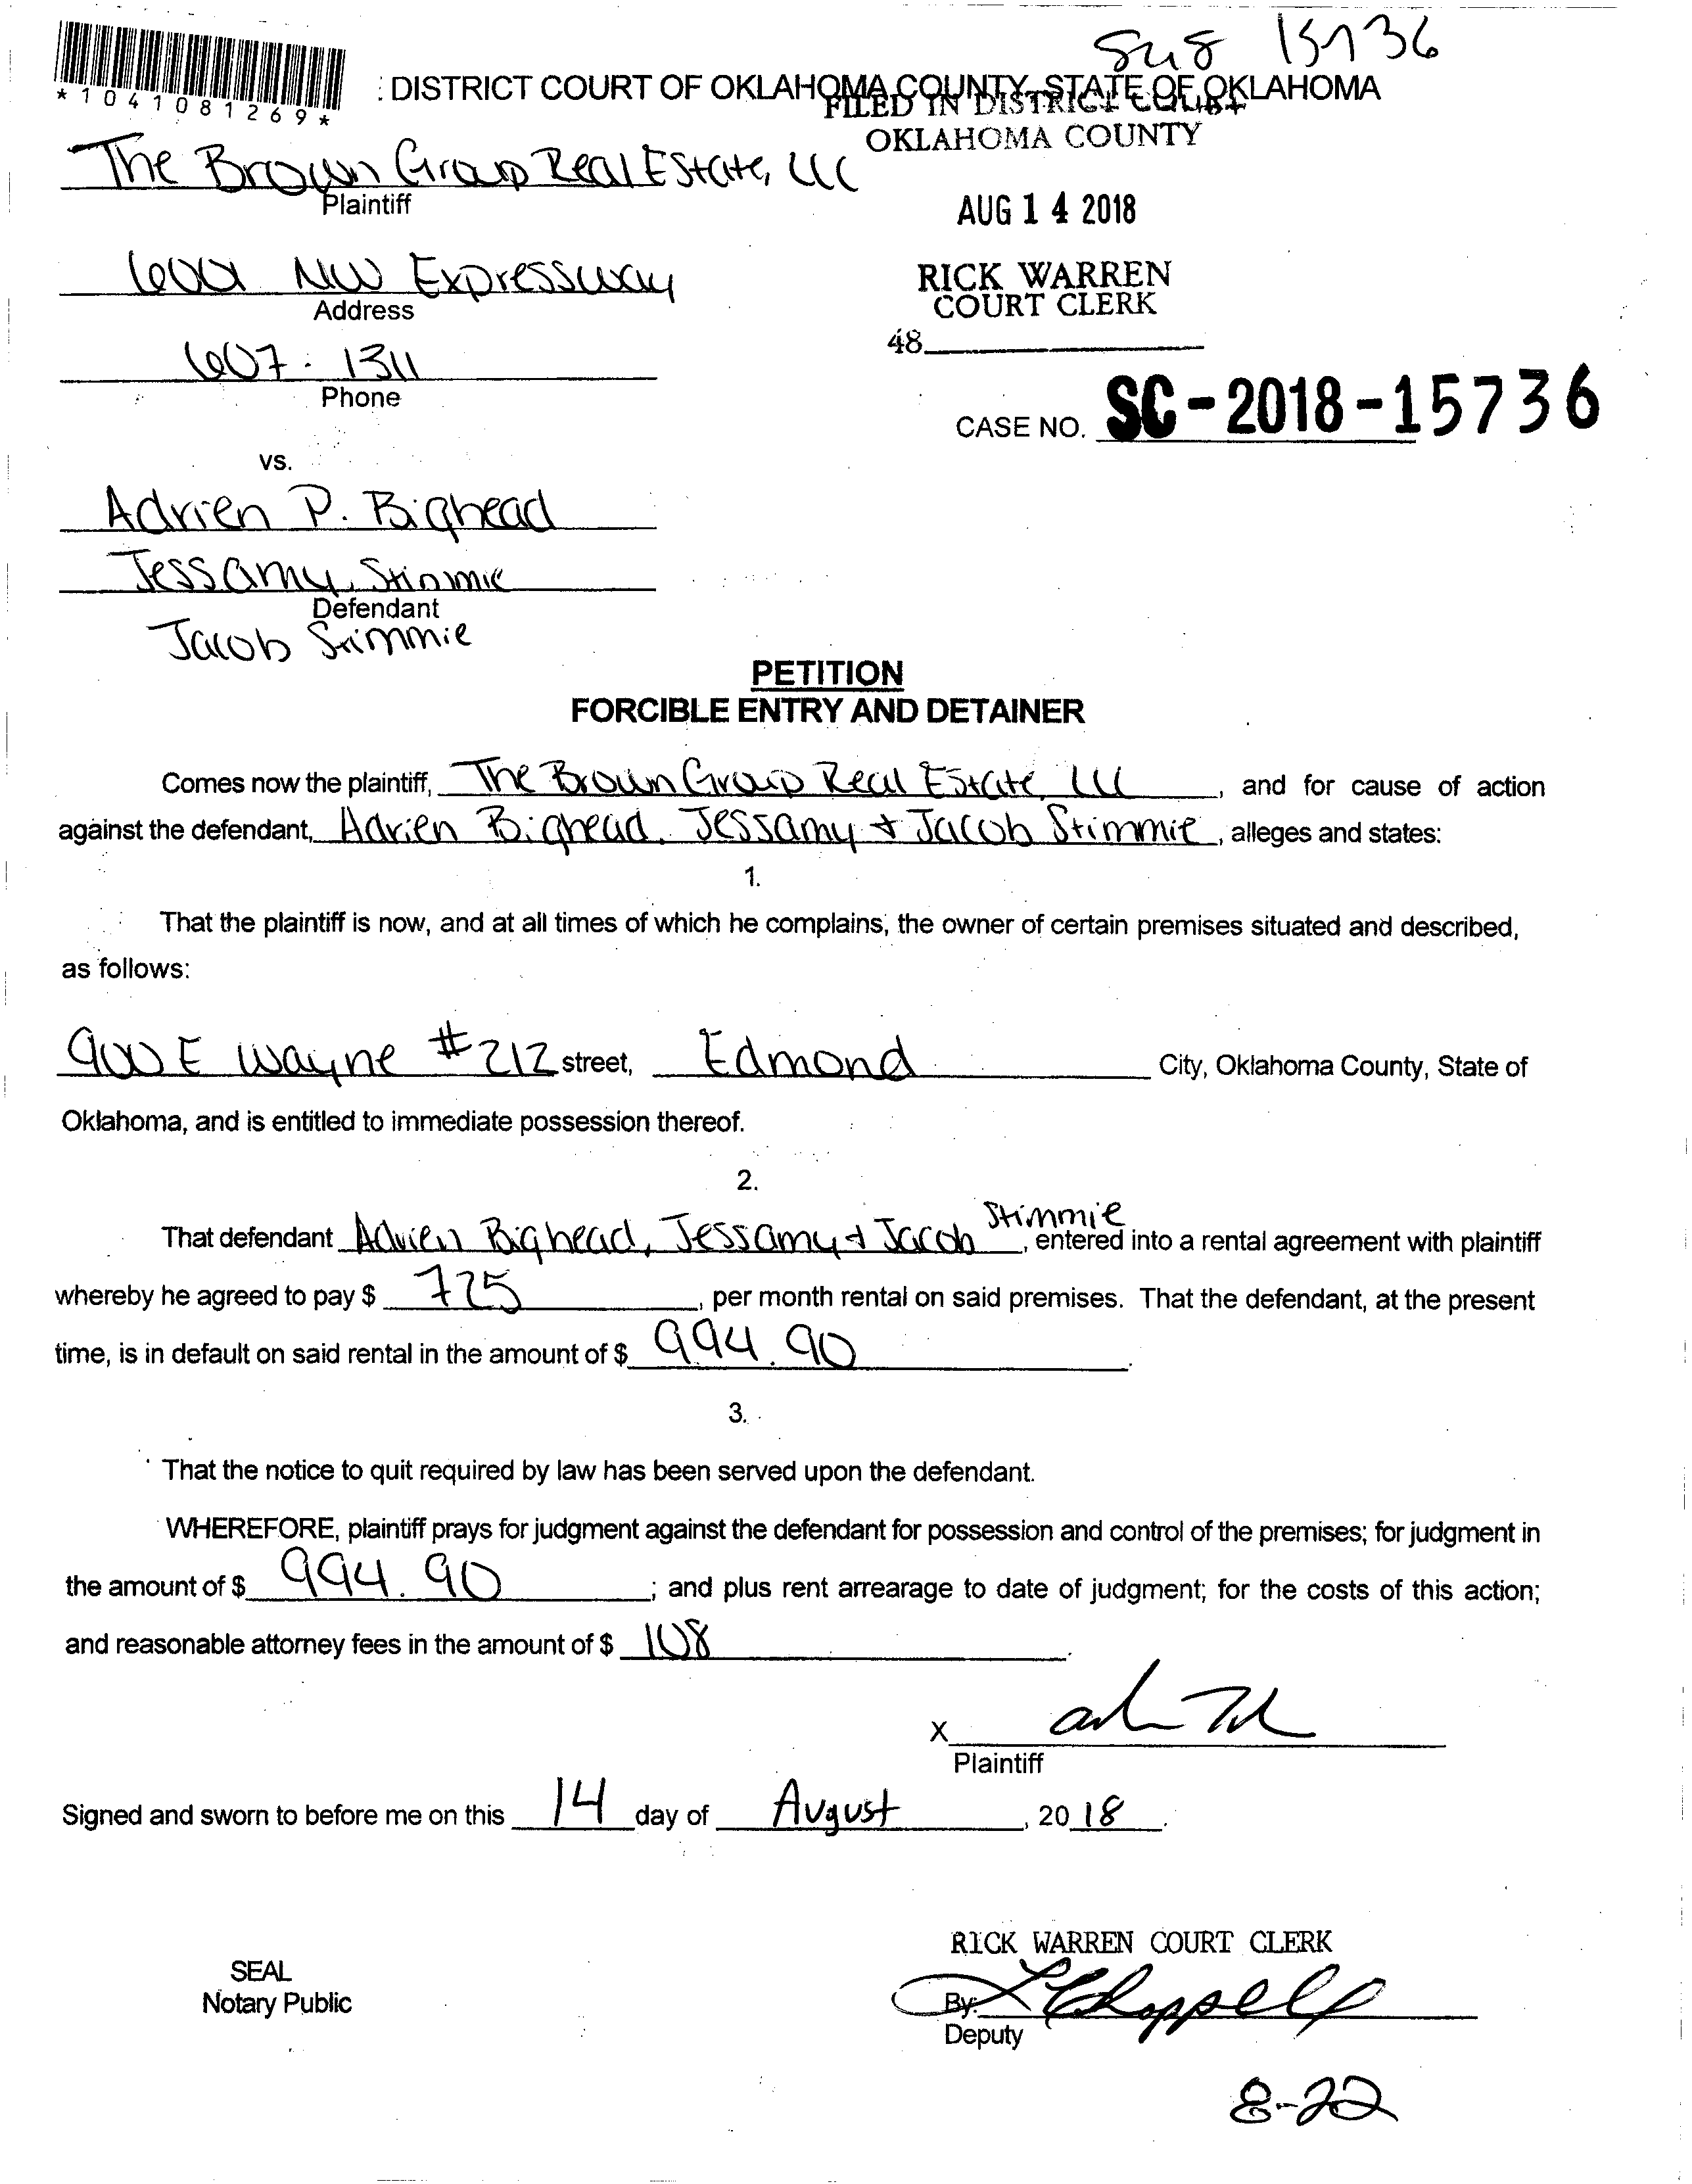 15736
*1041081269*
: DISTRICT COURT OF OKLAHOMA COUNTY, STATE OF OKLAHOMA
FILED IN DISTRICT COURT
OKLAHOMA COUNTY
The Brown Group Real Estate, LLC
Plaintiff
AUG 14 2018
6001 NW Expressway
Address
RICK WARREN
COURT CLERK
48
607-1311
Phone
CASE NO. SC-2018-15736
vs.
Adrien P. Bighead
Jessamy Stimmie
Defendant
Jacob Stimmie
PETITION
FORCIBLE ENTRY AND DETAINER
Comes now the plaintiff, The Brown Group Real Estate, LLC, and for cause of action
against the defendant, Adrien Bighead, Jessamy + Jacob Stimmie, alleges and states:
1.
That the plaintiff is now, and at all times of which he complains, the owner of certain premises situated and described,
as follows:
900 E Wayne #212 street, Edmond City, Oklahoma County, State of
Oklahoma, and is entitled to immediate possession thereof.
2.
That defendant Adrien Bighead, Jessamy + Jacob Stimmie, entered into a rental agreement with plaintiff
whereby he agreed to pay $ 725, per month rental on said premises. That the defendant, at the present
time, is in default on said rental in the amount of $ 994.90.
3.
That the notice to quit required by law has been served upon the defendant.
WHEREFORE, plaintiff prays for judgment against the defendant for possession and control of the premises; for judgment in
the amount of $ 994.90; and plus rent arrearage to date of judgment; for the costs of this action;
and reasonable attorney fees in the amount of $ 108.
X
Plaintiff
Signed and sworn to before me on this 14 day of August, 2018.
RICK WARREN COURT CLERK
SEAL
Notary Public
By: Chappell
Deputy
8-22